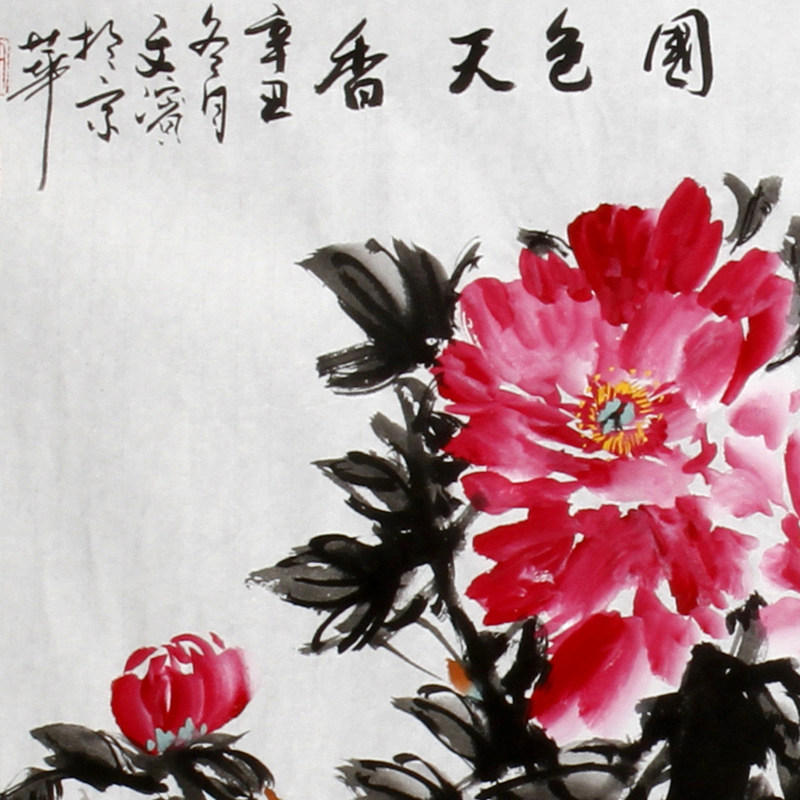 國色天香
辛丑
冬月
文濱
於京
華